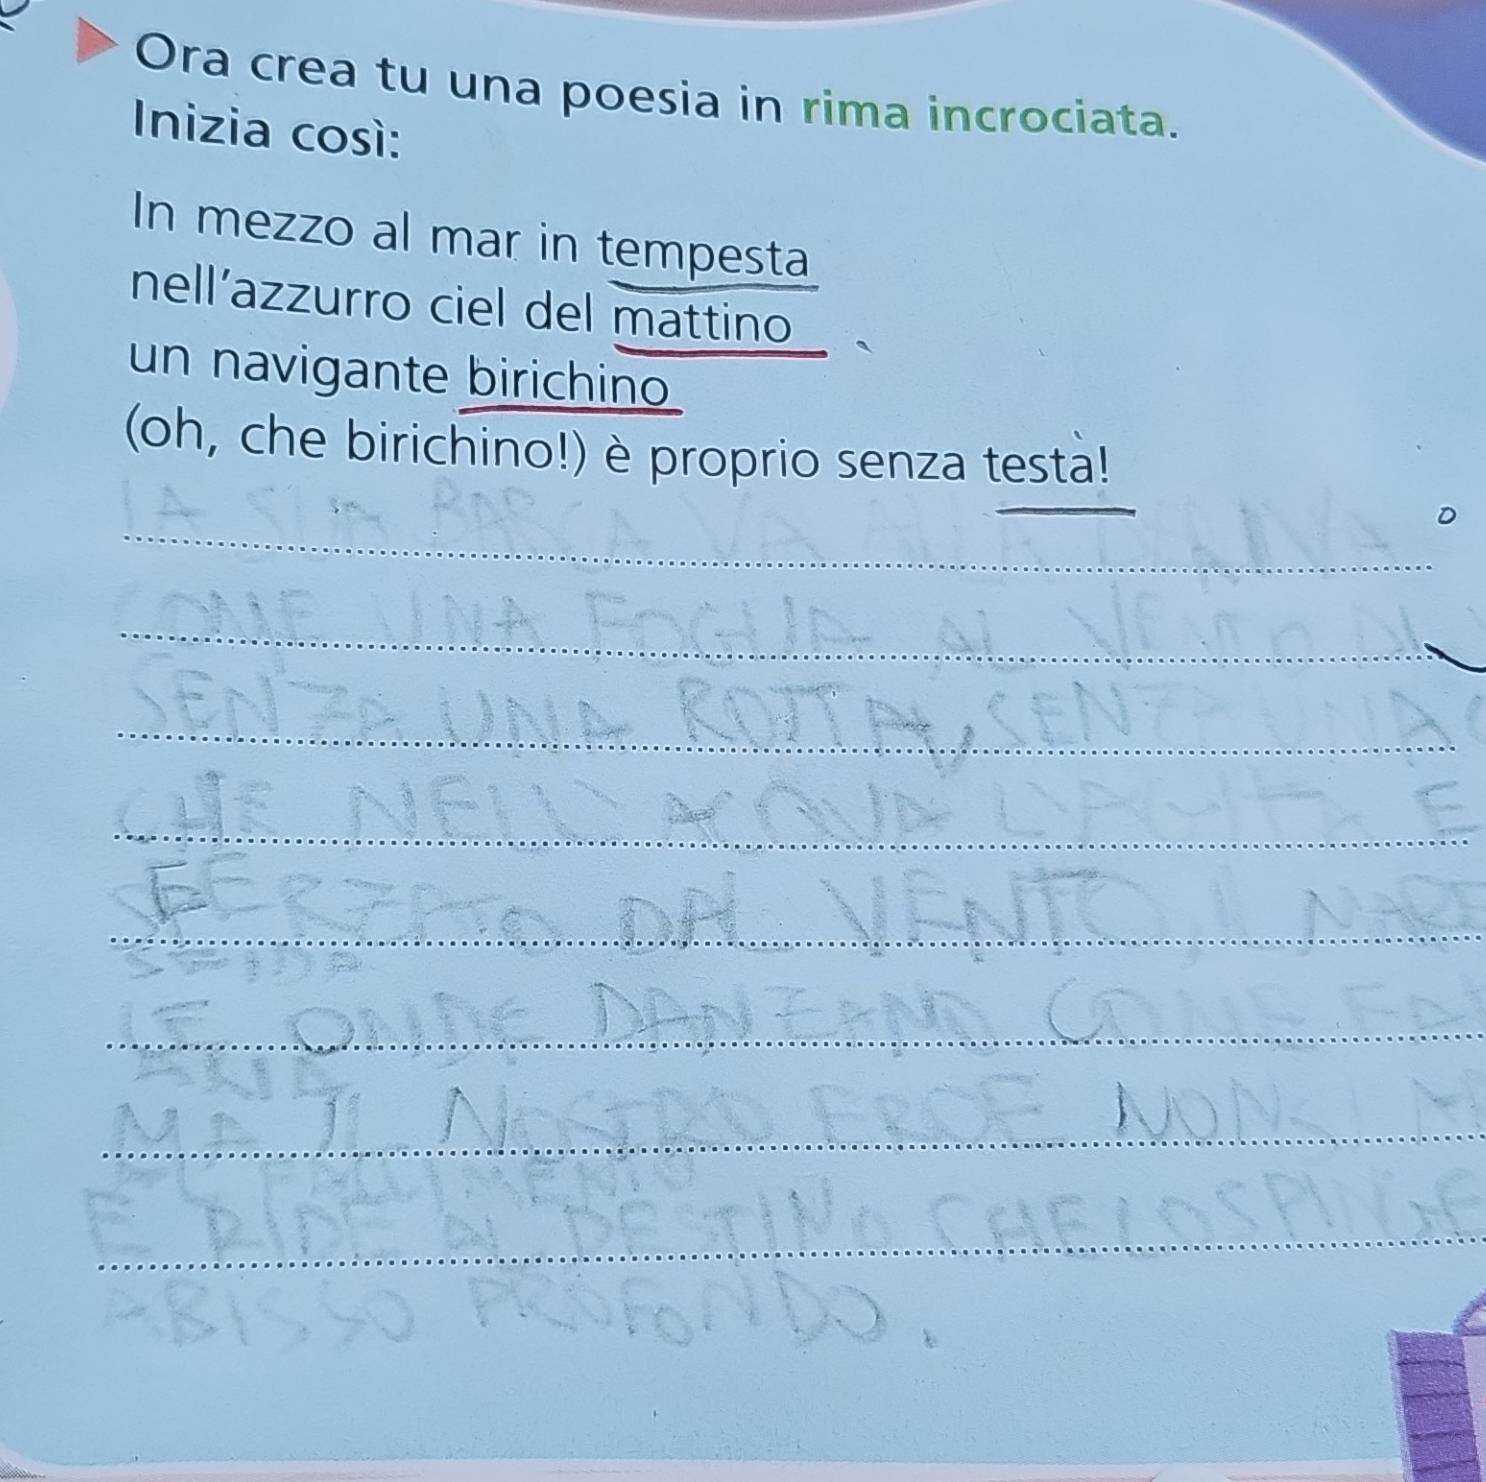 Ora crea tu una poesia in rima incrociata.
Inizia così:
In mezzo al mar in tempesta
nell'azzurro ciel del mattino
un navigante birichino
(oh, che birichino!) è proprio senza testa!
LA SUA BARCA VA ALLA DERIVA
COME UNA FOGLIA AL VENTO DI
SENZA UNA ROTTA, SENZA UNA
CHE NELL'ACQUA L'AGITA E
SFERZATO DAL VENTO, IL MARE
LE ONDE DANZANO COME FA
MA IL NOSTRO EROE NON SI
AL FALLIMENTO
E RIDE AL DESTINO CHE LO SPINGE
ABISSO PROFONDO.